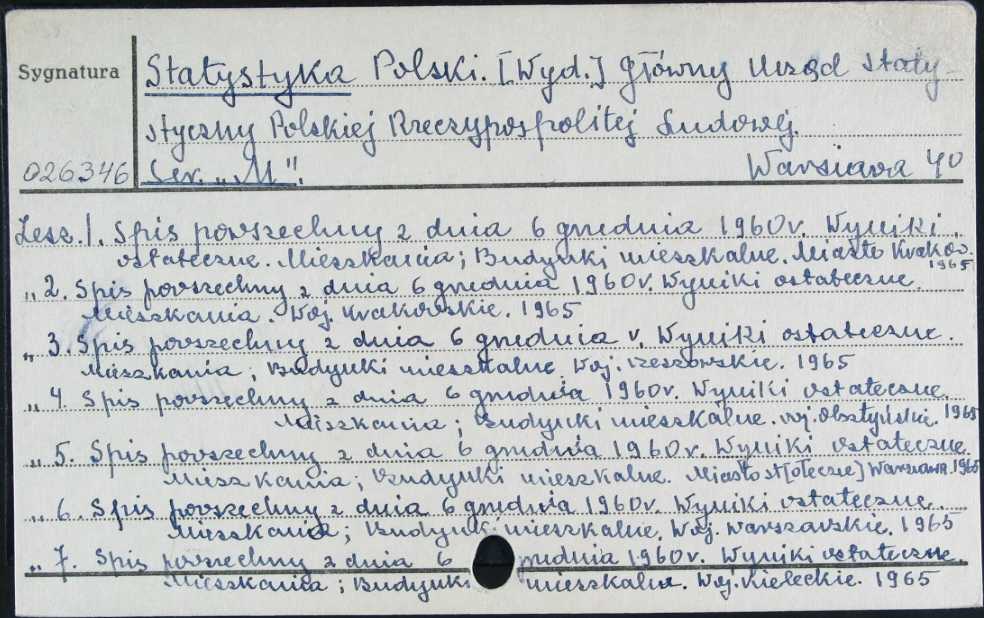 Sygnatura
Statystyka Polski. [Wyd.] Główny Urząd Staty-
styczny Polskiej Rzeczypospolitej Ludowej.
026346 Ser. „M". Warszawa 40
Zesz. 1. Spis powszechny z dnia 6 grudnia 1960 r. Wyniki
ostateczne. Mieszkania; Budynki mieszkalne. Miasto Kraków.
1965
„ 2. Spis powszechny z dnia 6 grudnia 1960 r. Wyniki ostateczne
Mieszkania. Woj. krakowskie. 1965
„ 3. Spis powszechny z dnia 6 grudnia r. Wyniki ostateczne.
Mieszkania; Budynki mieszkalne. Woj. rzeszowskie. 1965
„ 4. Spis powszechny z dnia 6 grudnia 1960 r. Wyniki ostateczne.
Mieszkania; Budynki mieszkalne. woj. olsztyńskie. 1965
„ 5. Spis powszechny z dnia 6 grudnia 1960 r. Wyniki ostateczne.
Mieszkania; Budynki mieszkalne. Miasto st[ołeczne] Warszawa. 1965
„ 6. Spis powszechny z dnia 6 grudnia 1960 r. Wyniki ostateczne.
Mieszkania; Budynki mieszkalne. Woj. warszawskie. 1965
„ 7. Spis powszechny z dnia 6 grudnia 1960 r. Wyniki ostateczne.
Mieszkania; Budynki mieszkalne. Woj. kieleckie. 1965